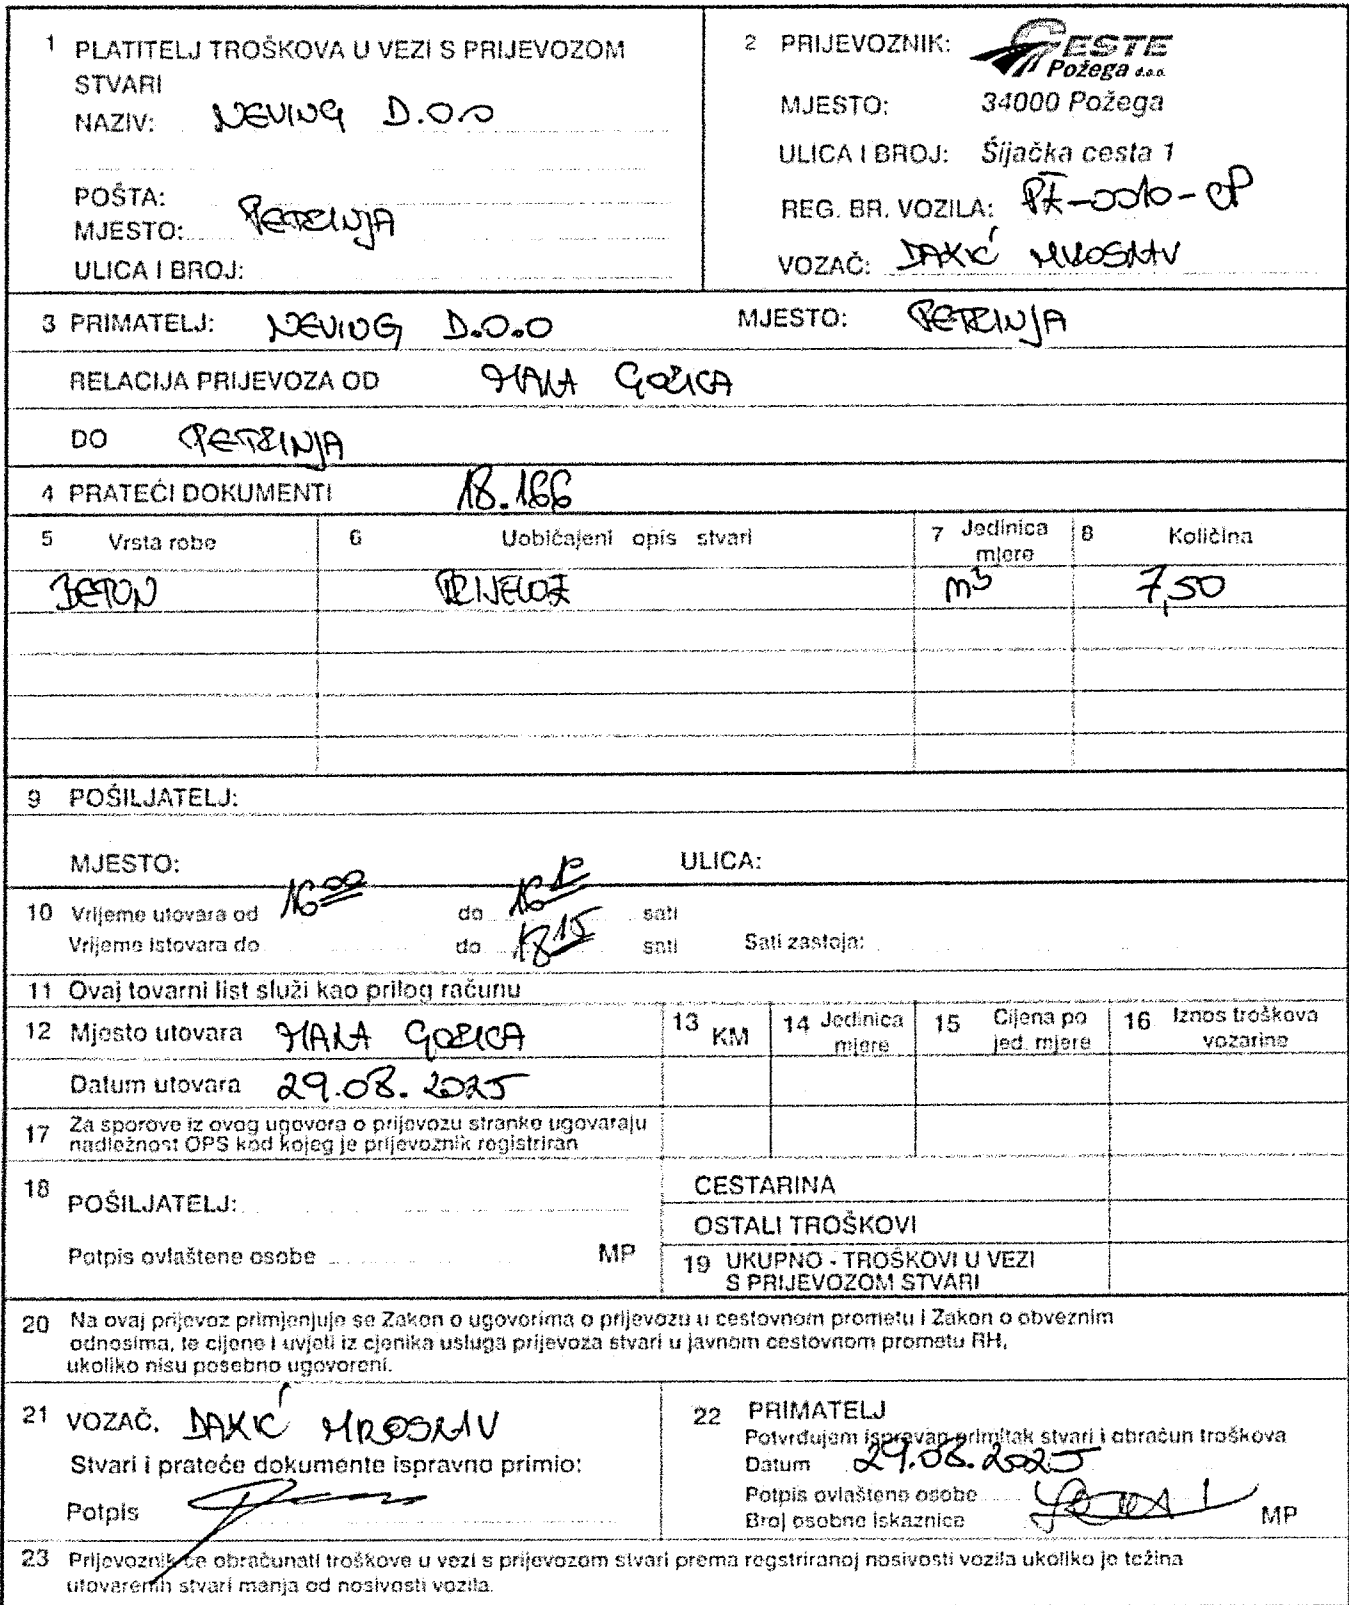 1 PLATITELJ TROŠKOVA U VEZI S PRIJEVOZOM
STVARI
NAZIV: NEVING D.O.O
POŠTA:
MJESTO: PETRINJA
ULICA I BROJ:
2 PRIJEVOZNIK: CESTE
Požega d.o.o.
MJESTO: 34000 Požega
ULICA I BROJ: Šijačka cesta 1
REG. BR. VOZILA: PŽ-0010-CP
VOZAČ: DAKIĆ MIROSLAV
3 PRIMATELJ: NEVING D.O.O MJESTO: PETRINJA
RELACIJA PRIJEVOZA OD MALA GORICA
DO PETRINJA
4 PRATEĆI DOKUMENTI 18.166
5 Vrsta robe 6 Uobičajeni opis stvari 7 Jedinica mjere 8 Količina
BETON PRIJEVOZ m³ 7,50
9 POŠILJATELJ:
MJESTO: ULICA:
10 Vrijeme utovara od 16 00 do 16 10 sati
Vrijeme istovara do do 18 15 sati Sati zastoja:
11 Ovaj tovarni list služi kao prilog računu
12 Mjesto utovara MALA GORICA
Datum utovara 29.08.2025
13 KM 14 Jedinica mjere 15 Cijena po jed. mjere 16 Iznos troškova vozarine
17 Za sporove iz ovog ugovora o prijevozu stranke ugovaraju
nadležnost OPS kod kojeg je prijevoznik registriran
18 POŠILJATELJ:
Potpis ovlaštene osobe MP
CESTARINA
OSTALI TROŠKOVI
19 UKUPNO - TROŠKOVI U VEZI
S PRIJEVOZOM STVARI
20 Na ovaj prijevoz primjenjuje se Zakon o ugovorima o prijevozu u cestovnom prometu i Zakon o obveznim
odnosima, te cijene i uvjeti iz cjenika usluga prijevoza stvari u javnom cestovnom prometu RH,
ukoliko nisu posebno ugovoreni.
21 VOZAČ. DAKIĆ MIROSLAV
Stvari i prateće dokumente ispravno primio:
Potpis
22 PRIMATELJ
Potvrđujem ispravan primitak stvari i obračun troškova
Datum 29.08.2025
Potpis ovlaštene osobe
Broj osobne iskaznice MP
23 Prijevoznik će obračunati troškove u vezi s prijevozom stvari prema regstriranoj nosivosti vozila ukoliko je težina
utovarenih stvari manja od nosivosti vozila.